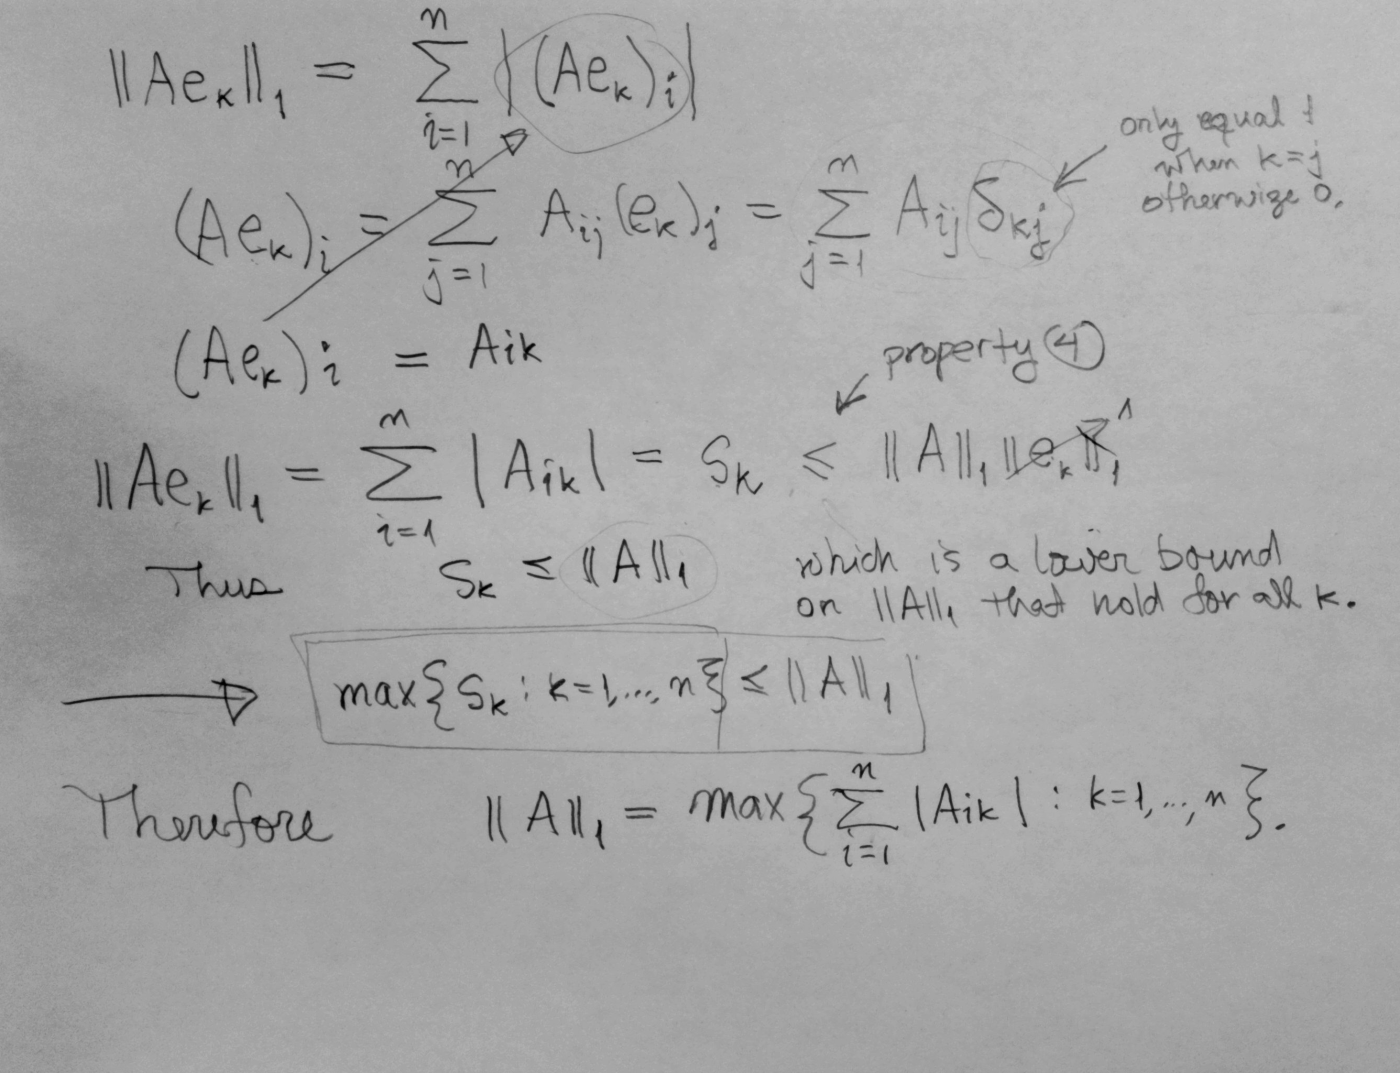 ‖Ae_k‖_1 = ∑_{i=1}^{n} |(Ae_k)_i|
only equal 1
when k=j
otherwize 0.
(Ae_k)_i = ∑_{j=1}^{n} A_{ij}(e_k)_j = ∑_{j=1}^{n} A_{ij} δ_{kj}
(Ae_k)_i = A_{ik}
property ④
‖Ae_k‖_1 = ∑_{i=1}^{n} |A_{ik}| = S_k ≤ ‖A‖_1 ‖e_k‖_1 1
Thus S_k ≤ ‖A‖_1 which is a lower bound
on ‖A‖_1 that hold for all k.
max{S_k : k=1,...,n} ≤ ‖A‖_1
Therefore ‖A‖_1 = max{∑_{i=1}^{n} |A_{ik}| : k=1,...,n}.